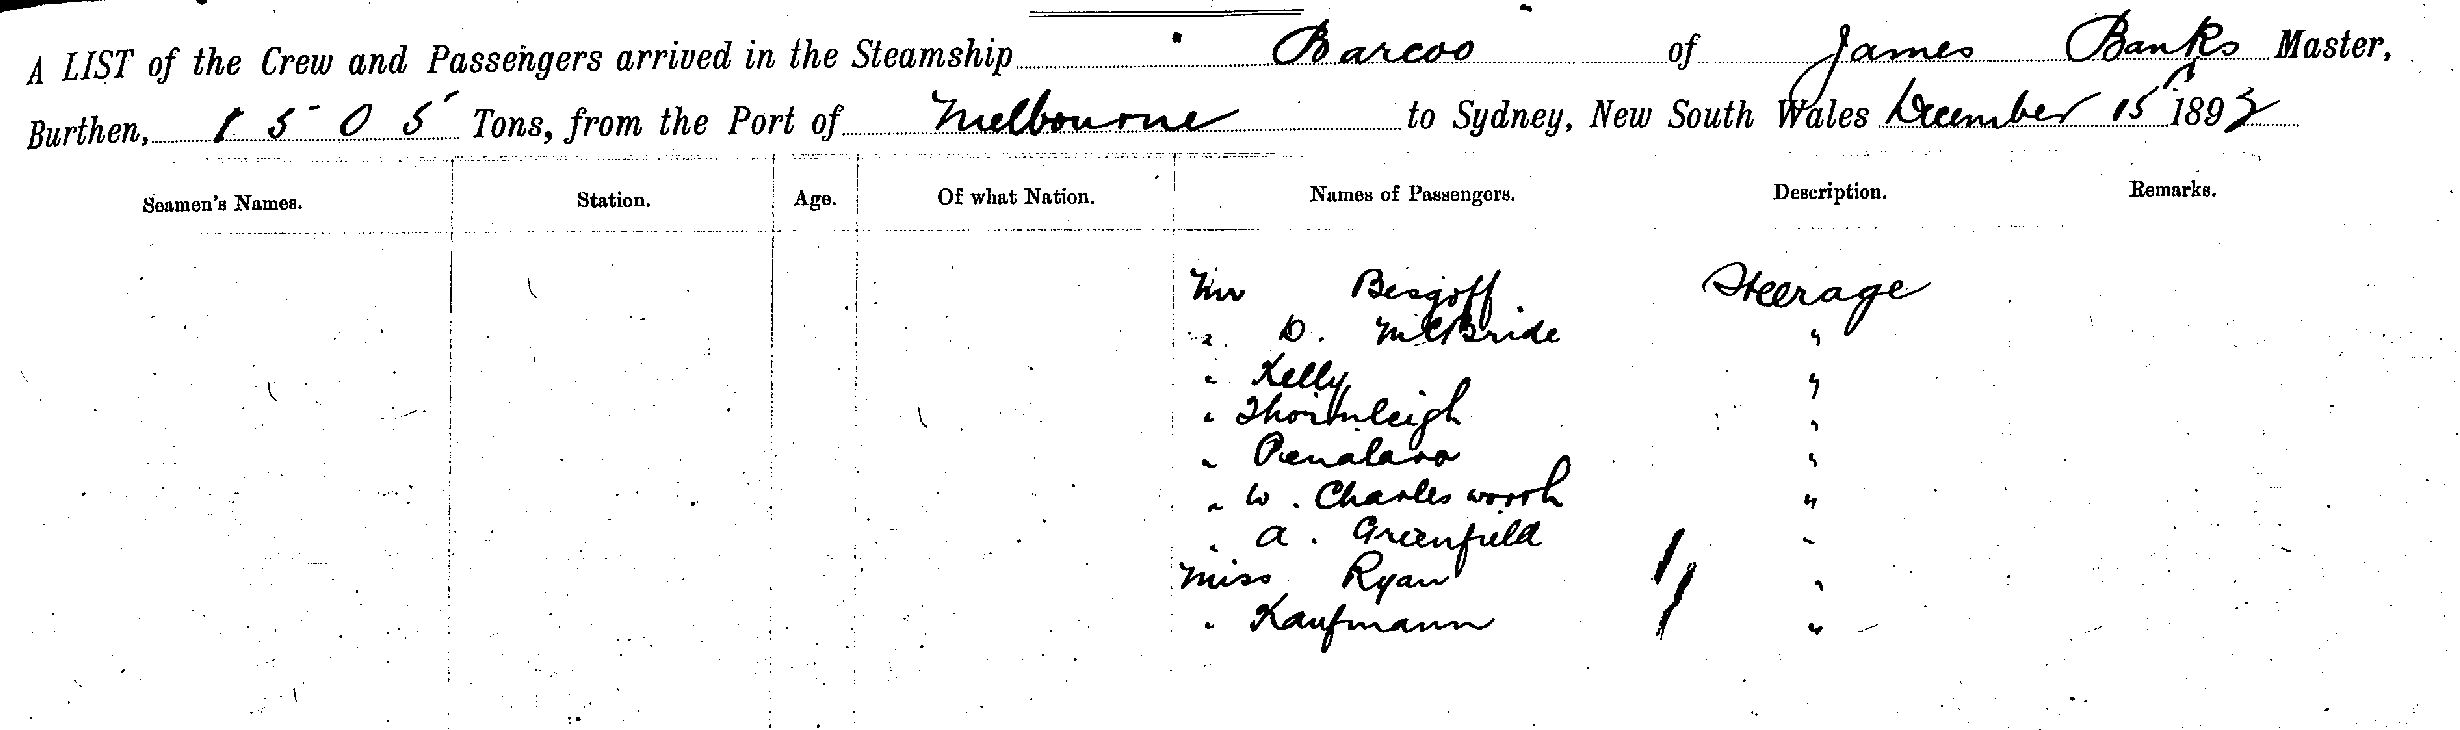 A LIST of the Crew and Passengers arrived in the Steamship Barcoo of James Banks Master,
Burthen, 1505 Tons, from the Port of Melbourne to Sydney, New South Wales December 15th 1893
Seamen's Names. Station. Age. Of what Nation. Names of Passengers. Description. Remarks.
Mr Bisgoff Steerage
" D. McBride "
" Kelly "
" Thornleigh "
" "
" W. Charlesworth "
" A. Greenfield "
Miss Ryan "
" Kaufmann "